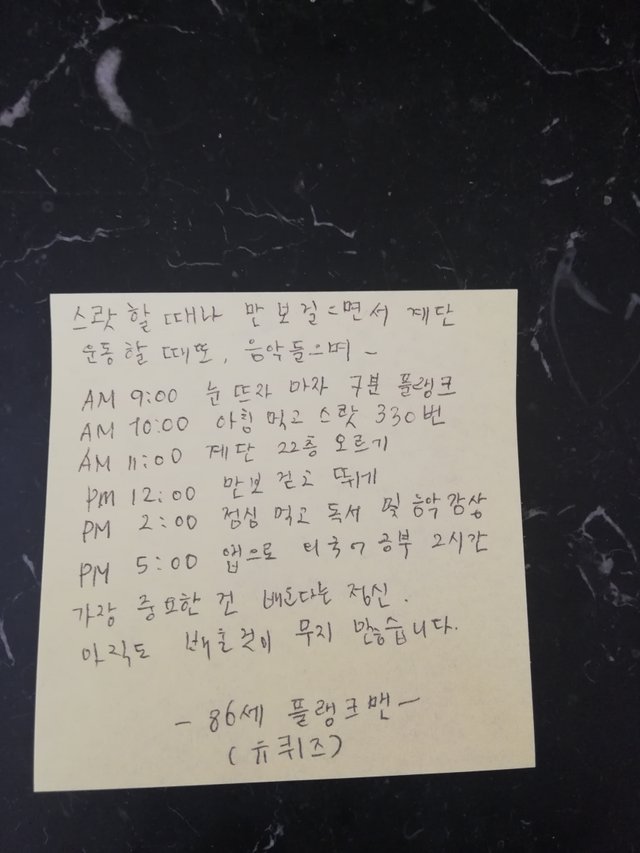 스콰트 할 때나 만보걸으면서 계단
운동할 때또, 음악들으며 -
AM 9:00 눈 뜨자 마자 9분 플랭크
AM 10:00 아침 먹고 스쾃 330번
AM 11:00 계단 22층 오르기
PM 12:00 만보 걷고 뛰기
PM 2:00 점심 먹고 독서 및 음악 감상
PM 5:00 앱으로 외국어 공부 2시간
가장 중요한 건 배운다는 정신.
아직도 배울것이 무지 많습니다.
- 86세 플랭크맨 -
(유퀴즈)